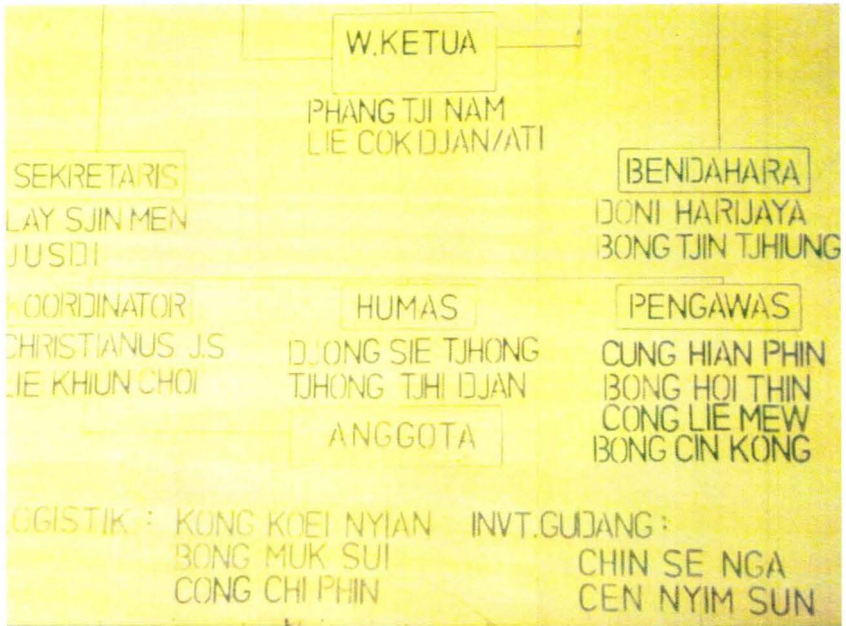 W.KETUA
PHANG TJI NAM
LIE COK DJAN/ATI
SEKRETARIS
LAY SJIN MEN
JUSDI
BENDAHARA
DONI HARIJAYA
BONG TJIN TJHIUNG
KOORDINATOR
CHRISTIANUS J.S
LIE KHIUN CHOI
HUMAS
DJONG SIE TJHONG
TJHONG TJHI DJAN
PENGAWAS
CUNG HIAN PHIN
BONG HOI THIN
CONG LIE MEW
BONG CIN KONG
ANGGOTA
LOGISTIK : KONG KOEI NYIAN
BONG MUK SUI
CONG CHI PHIN
INVT.GUDANG :
CHIN SE NGA
CEN NYIM SUN